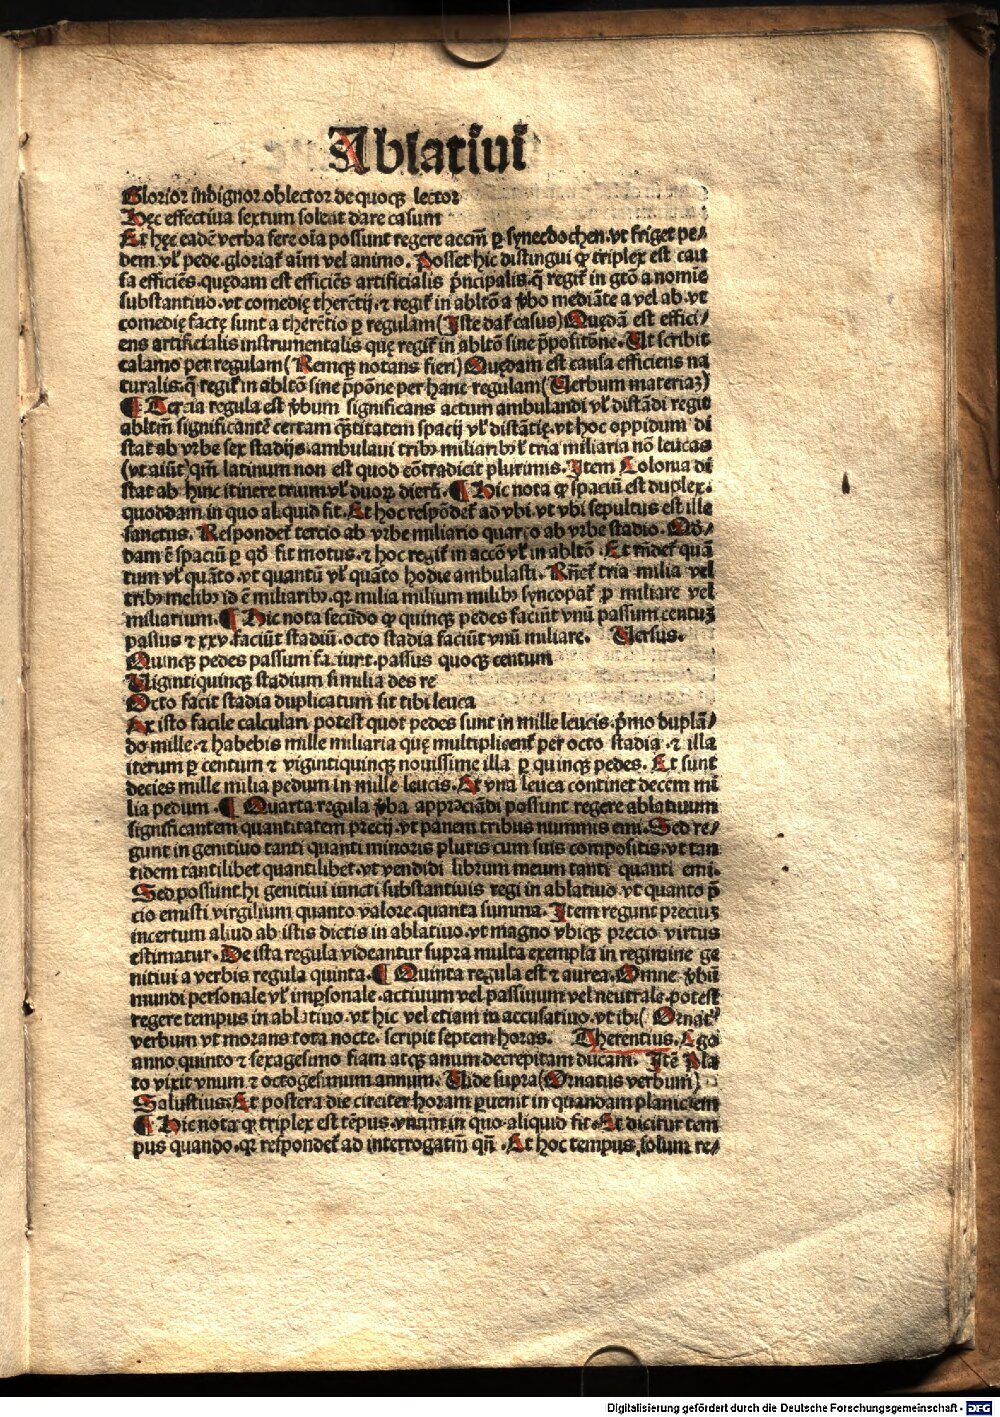 Ablatiui
Glorior indignor oblector de quoqȝ lector
Hęc effectiua sextum soleat dare casum
Et hęc eadē verba fere oīa possunt regere accm̄ ꝑ synecdochen.vt friget pe⸗
dem vl̓ pede.gloriat̄ aīm vel animo. Posset hic distingui ꝙ triplex est cau
sa efficiēs.quędam est efficiēs artificialis p̄ncipalis.q̄ regit̄ in gtō a nomīe
substantiuo.vt comedię therētij.⁊ regit̄ in abltō a v̄bo mediāte a vel ab.vt
comedię factę sunt a therētio ꝑ regulam(Iste dat̄ casus)Quędā est effici⸗
ens artificialis instrumentalis quę regit̄ in abltō sine p̄positōne.Ut scribit
calamo per regulam(Remqȝ notans fieri)Quędam est causa efficiens na
turalis.q̄ regit̄ in abltō sine p̄pōne per hanc regulam(Uerbum materiaȝ)
¶ Tercia regula est v̄bum significans actum ambulandi vl̓ distādi regit
abltm̄ significantē certam q̄ntitatem spacij vl̓ distātię.vt hoc oppidum di
stat ab vrbe sex stadijs.ambulaui tribꝰ miliaribꝰ l̓ tria miliaria nō leucas
(vt aiūt)qm̄ latinum non est quod cōtradicit plurimis.Item Colonia di
stat ab hinc itinere trium vl̓ duoꝝ dierū.¶ Hic nota ꝙ spaciū est duplex.
quoddam in quo aliquid fit.Et hoc respōdet̄ ad vbi.vt vbi sepultus est ille
sanctus. Respondet̄ tercio ab vrbe miliario quarto ab vrbe stadio. Qd̄⸗
dam ē spaciū ꝑ qd̄ fit motus.⁊ hoc regit̄ in accō vl̓ in abltō .Et rn̄det̄ quā
tum vl̓ quāto.vt quantū vl̓ quāto hodie ambulasti. Rn̄det̄ tria milia vel
tribꝰ melibꝰ id ē miliaribꝰ.qꝛ milia milium milibꝰ syncopat̄ ꝓ miliare vel
miliarium.¶ Hic nota secūdo ꝙ quinqȝ pedes faciūt vnū passum centuȝ
passus ⁊ xxv.faciūt stadiū.octo stadia faciūt vnū miliare. Uersus.
Quinqȝ pedes passum faciunt.passus quoqȝ centum
Uigintiquinqȝ stadium si milia des re
Octo facit stadia duplicatum fit tibi leuca
Ex isto facile calculari potest quot pedes sunt in mille leucis.p̄mo duplā⸗
do mille.⁊ habebis mille miliaria quę multiplicent̄ per octo stadia .⁊ illa
iterum ꝑ centum ⁊ vigintiquinqȝ nouissime illa ꝑ quinqȝ pedes. Et sunt
decies mille milia pedum in mille leucis.Et vna leuca continet decem mi
lia pedum .¶ Quarta regula v̄ba appreciādi possunt regere ablatiuum
significantem quantitatem precij.vt panem tribus nummis emi.Sed re⸗
gunt in genitiuo tanti quanti minoris pluris cum suis compositis.vt tan
tidem tantilibet quantilibet.vt vendidi librum meum tanti quanti emi.
Sed possunt hi genitiui iuncti substantiuis regi in ablatiuo vt quanto p̄
cio emisti virgilium quanto valore.quanta summa. Item regunt preciuȝ
incertum aliud ab istis dictis in ablatiuo.vt magno vbiqȝ precio virtus
estimatur.De ista regula videantur supra multa exempla in regimine ge
nitiui a verbis regula quinta.¶ Quinta regula est ⁊ aurea.Omne v̄bū
mundi personale vl̓ imꝑsonale.actiuum vel passiuum vel neutrale.potest
regere tempus in ablatiuo.vt hic vel etiam in accusatiuo.vt ibi( Ornatꝰ
verbum vt morans tota nocte. scripit septem horas. Therentius.Ego
anno quinto ⁊ sexagesimo fiam atqȝ anum decrepitam ducam. Itē Pla
to vixit vnum ⁊ octogesimum annum. Uide supra(Ornatus verbum)
Salustius.Et postera die circiter horam ꝑuenit in quandam planiciem
¶ Hic nota ꝙ triplex est tēpus.vnum in quo aliquid fit.Et dicitur tem
pus quando.qꝛ respondet̄ ad interrogatm̄ qn̄ .Et hoc tempus solum re⸗
Digitalisierung gefördert durch die Deutsche Forschungsgemeinschaft - DFG